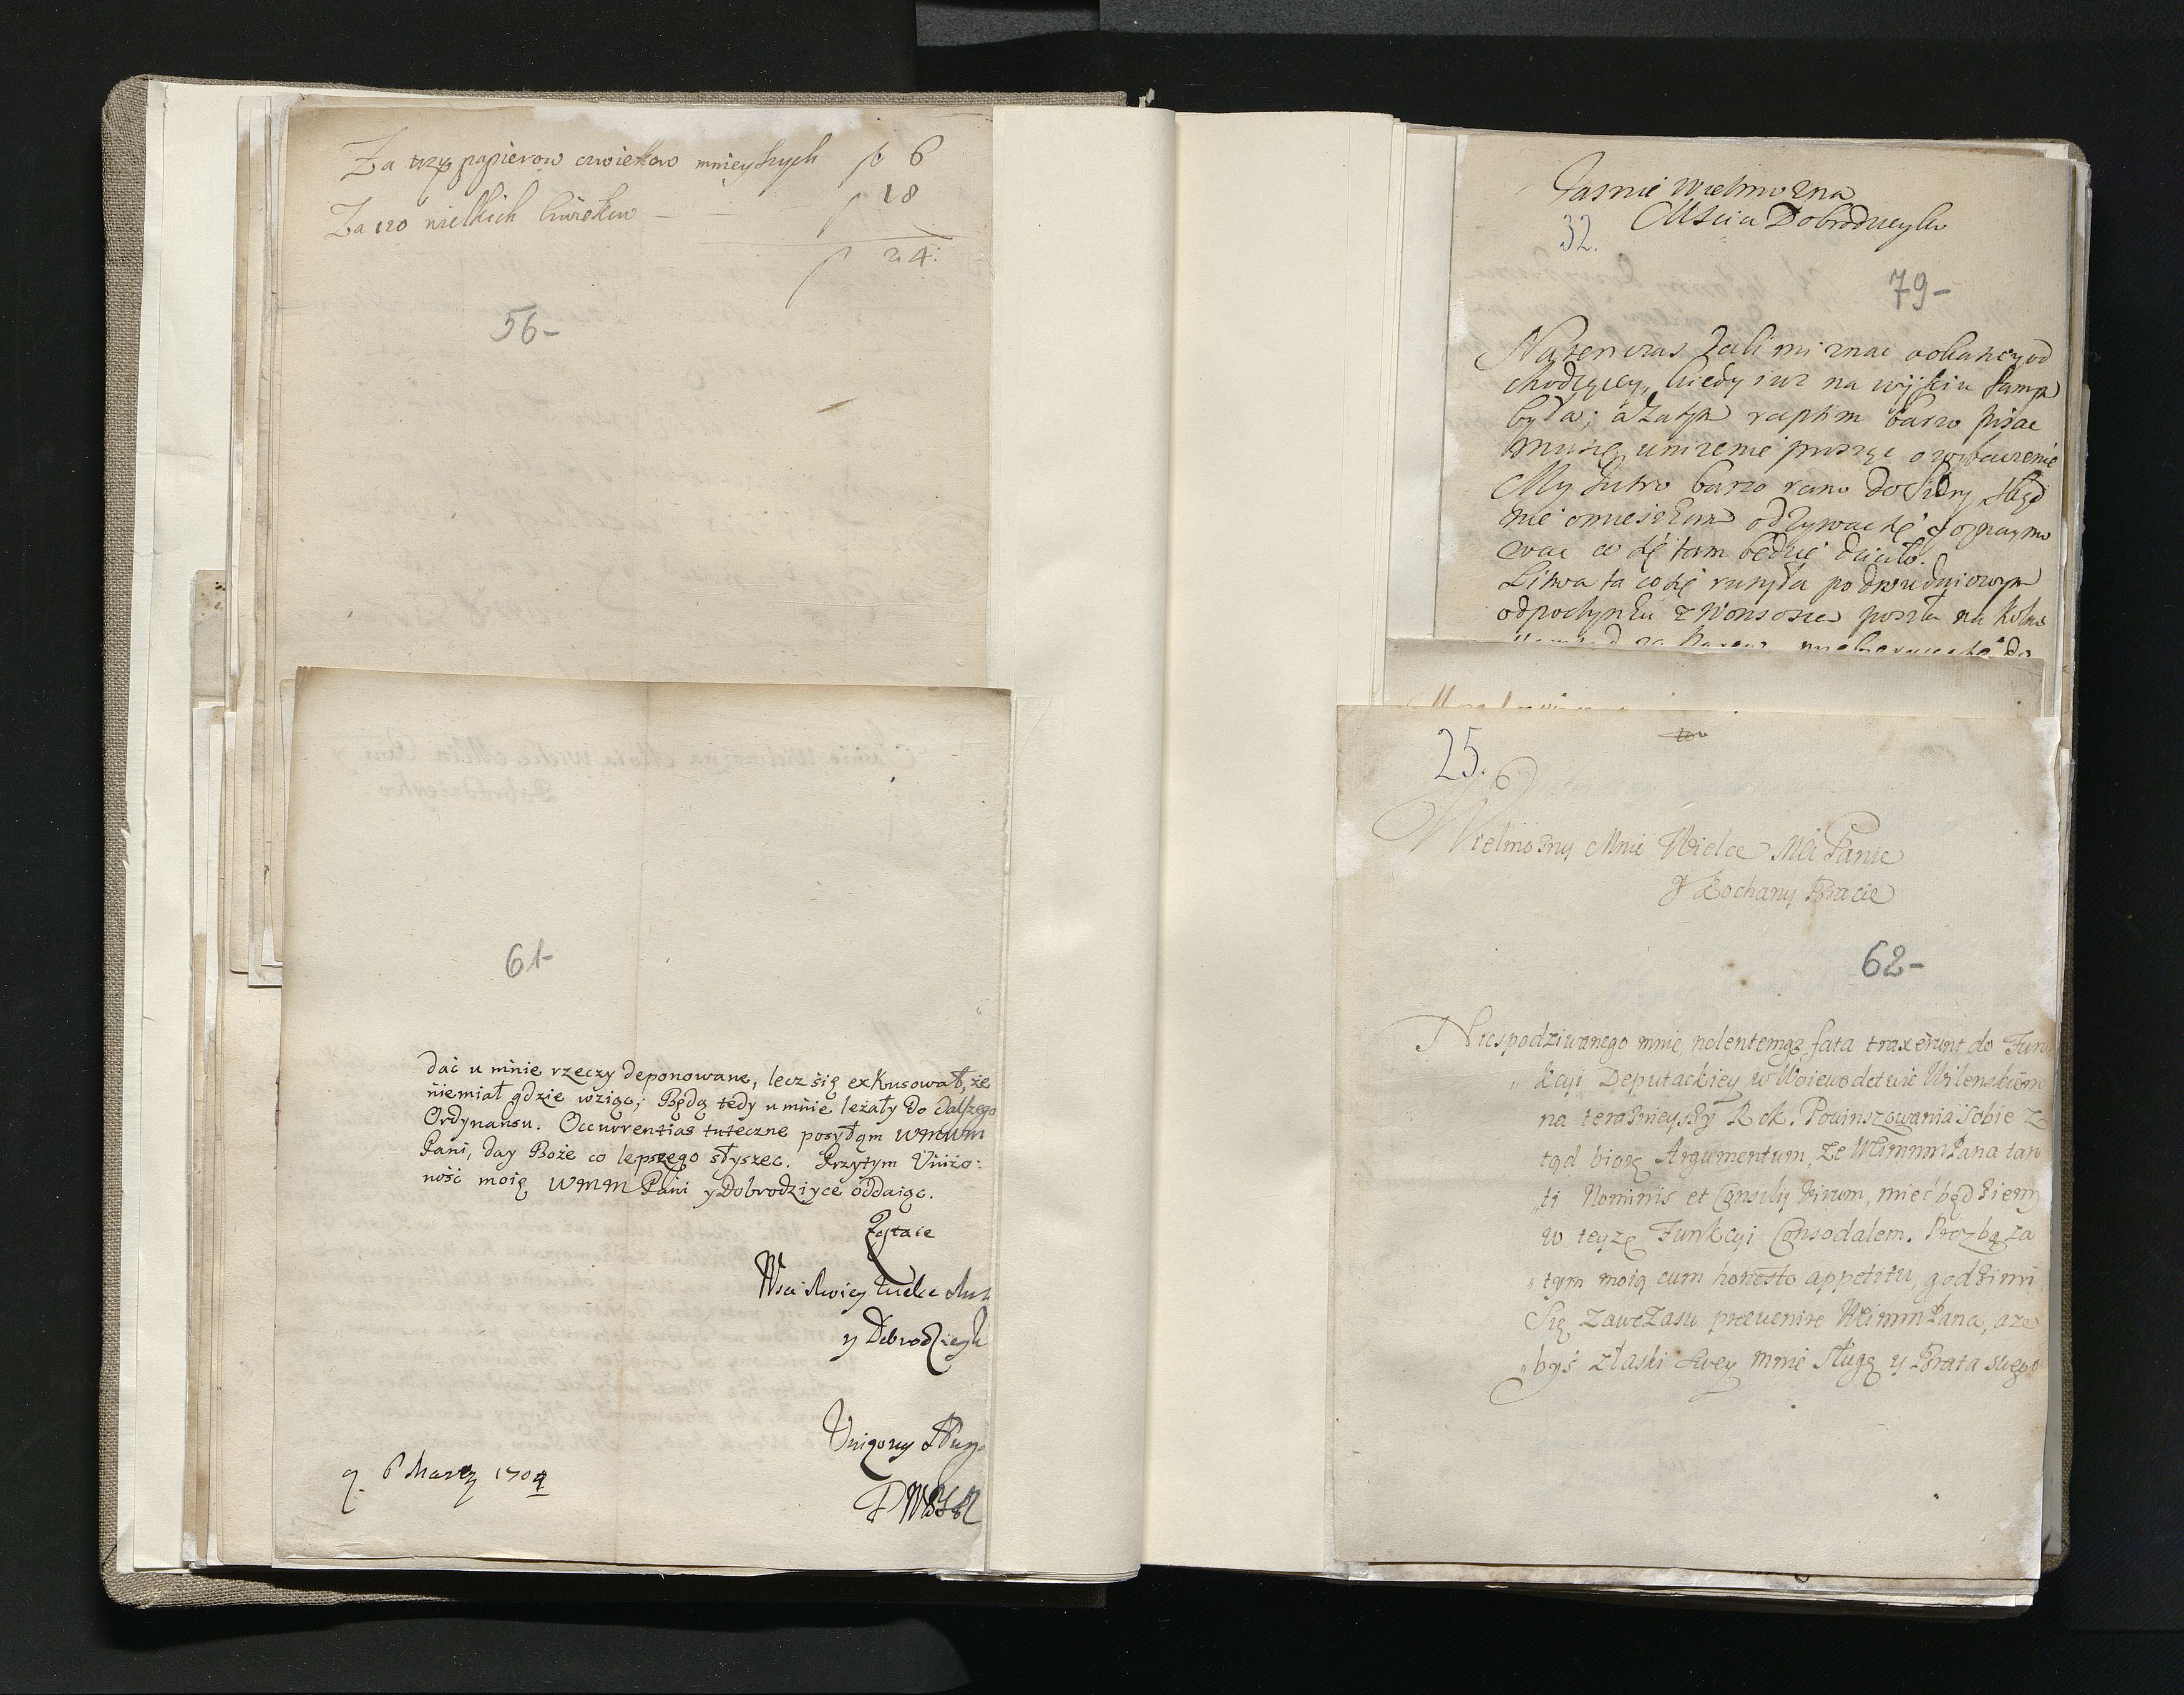 Za trzy papierow cwiekow mnieyszych f 6
Za 120 wielkich cwiekow — f 18
f 24:
56-
61-
dać u mnie rzeczy deponowane, lecz się exkusował, że
niemiał gdzie wziąc; Będą tedy u mnie leżały do dalszego
Ordynansu. Occurrentias tuteczne posyłąm WMMM
Pani, day Boże co lepszego słyszec. Przytym Uniżo:
ność moię WMM Pani y Dobrodziyce oddaiąc.
Zostaie
y Dobrodzieyk
Uniżony Sług
6 Marty 1704
Jasnie Wielmozna
Mscia Dobrodzieyko
32.
79-
Na ten czas dali mi znac
chodzący, kiedy iuz na wyściu sama
była; a zatym raptim barzo pisac
muszę, unizenie proszęc o wybaczenie
My Jutro barzo rano do
nie omieszkam odzywac się y oznaymo
wac co się tam będzie działo.
Litwa ta co się ruszyła po dwudniowym
odpoczynku z Wonsosza poszła na Kolno
25.
Wielmożny Mnie Wielce Mći Panie
Y Kochany Bracie
62-
Niespodziwanego mnie, nolentemqz fata traxerunt do Fun
„ kcyi Deputackiey w Woiewodztwie Wilenskiem
na teraznieyszy Rok. Powinszowania Sobie z
tąd biorę Argumentum, że WMmmPana tan
„ti Nominis et Consilij Virum, mieć będziemy
w teyże Funkcyi Consodalem. Proźbą za
„tym moią cum honesto appetitu, godzi mi
Się zawczasu prævenire WMmmPana, aże
„byś z łaski Swey mnie sługę y Brata swego